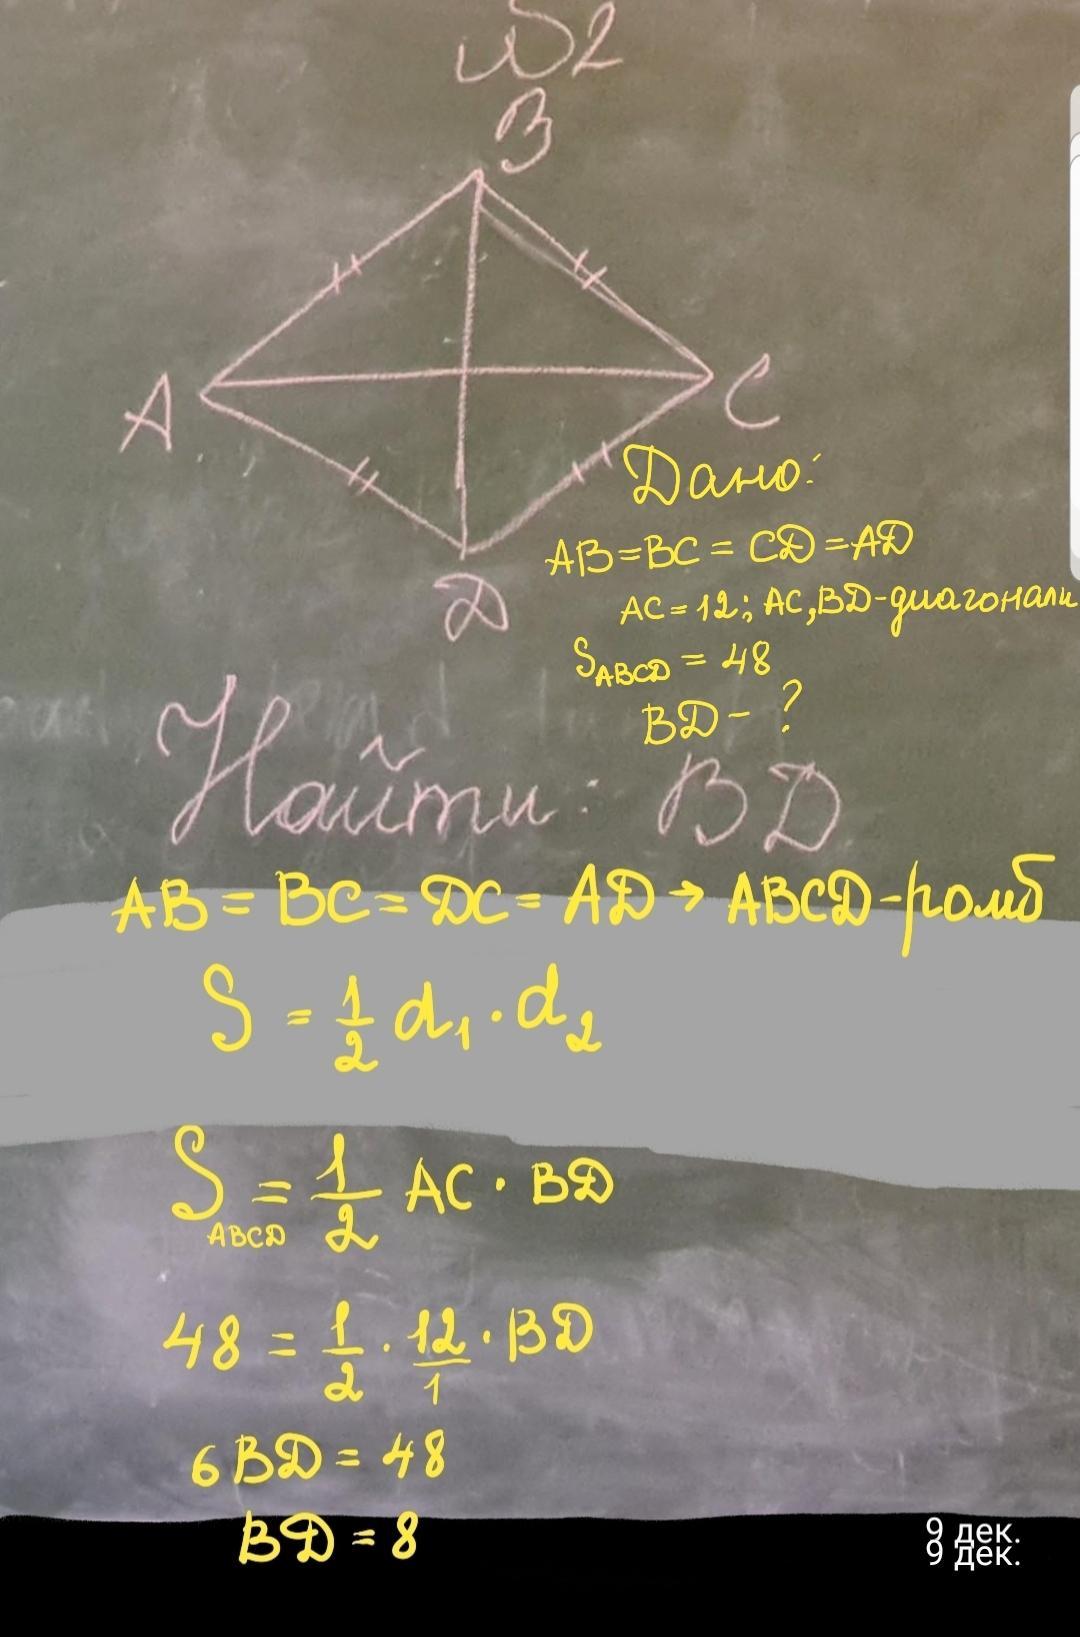 №2
B
A
C
D
Дано:
AB=BC=CD=AD
AC=12; AC,BD-диагонали
S ABCD = 48
BD - ?
Найти: BD
AB = BC = DC = AD → ABCD-ромб
S = 1/2 d1 · d2
S ABCD = 1/2 AC · BD
48 = 1/2 · 12/1 · BD
6BD = 48
BD = 8
9 дек.
9 дек.